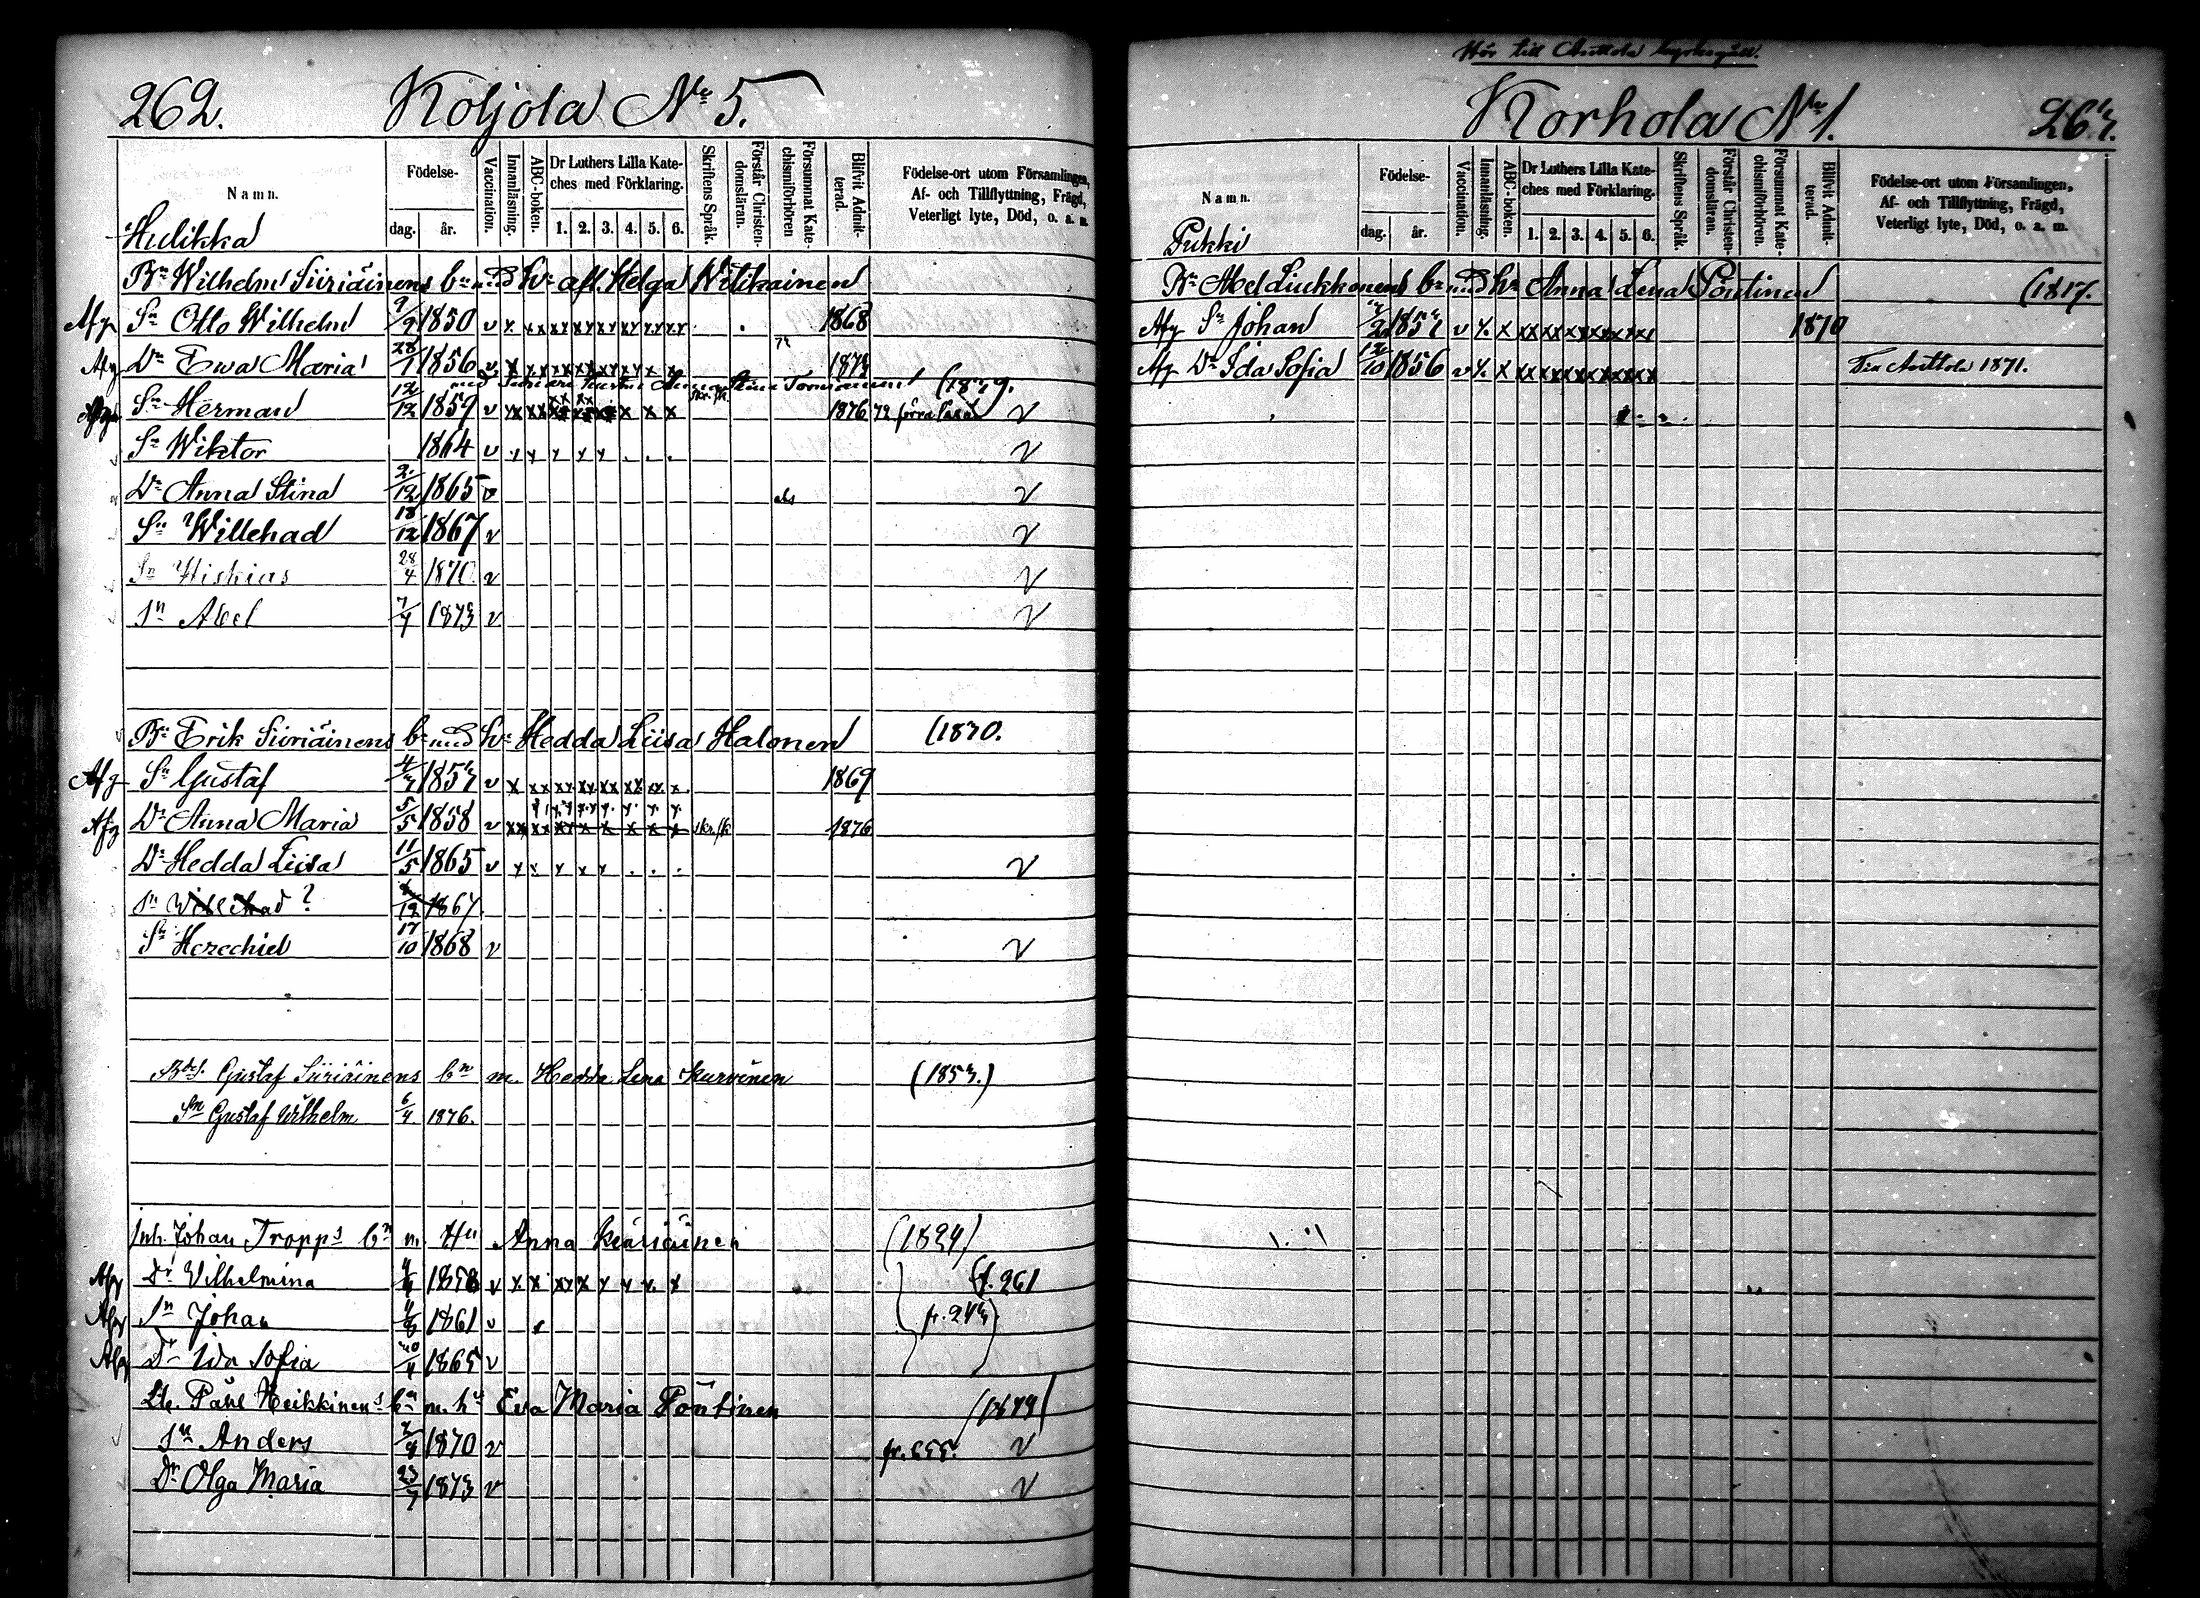 262. Koljola No 5.
Namn. Födelse- dag. år. Vaccination. Innanläsning. ABC-boken. Dr Luthers Lilla Kateches med Förklaring. 1. 2. 3. 4. 5. 6. Skriftens Språk. Förstår Christendomsläran. Försummat Katechismiförhören Blifvit Admitterad. Födelse-ort utom Församlingen, Af- och Tillflyttning, Frägd, Veterligt lyte, Död, o. a. m.
Hulikka
Bn Wilhelm Siiriäinens bn med h. afl. Helga Witikainen
Afg Sn Otto Wilhelm 9/9 1850 v 1868
Afg Dr Ewa Maria 28/1 1856 v 1873
(1879.
Sn Herman 12/12 1859 v 1876 v
Sn Wiktor 1864 v v
Dr Anna Stina 2/12 1865 v v
Sn Willehad 18/12 1867 v v
Sn Hiskias 28/4 1870 v v
Sn Abel 7/7 1873 v v
Bn Erik Siiriäinens bn med h. Hedda Liisa Halonen (1830.
Afg Sn Gustaf 1853 v 1869
Afg Dr Anna Maria 5/5 1858 v 1876
Dr Hedda Liisa 11/5 1865 v v
Sn Willehad ? 1867
Sn Hezechiel 17/10 1868 v v
Gustaf Siiriäinens bn m. Hedda Lena Kurvinen (1853.)
Sn Gustaf Wilhelm 6/4 1876.
Inh. Johan Tropps bn m. Hu Anna Kiäriäinen (1824)
Afg Dr Vilhelmina 1858 v f. 261
Afg Sn Johan 1861 v fr. 243
Afg Dr Ida Sofia 1865 v
Påhl Heikkinens bn m. hu Eva Maria Pöntinen (1849)
Sn Anders 1870 v fr. 255. v
Dr Olga Maria 23/7 1873 v v
Hör till Anttola
Korhola No 1. 263.
Namn. Födelse- dag. år. Vaccination. Innanläsning. ABC-boken. Dr Luthers Lilla Kateches med Förklaring. 1. 2. 3. 4. 5. 6. Skriftens Språk. Förstår Christendomsläran. Försummat Katechismiförhören. Blifvit Admitterad. Födelse-ort utom Församlingen, Af- och Tillflyttning, Frägd, Veterligt lyte, Död, o. a. m.
Pukki
Bn Abel Liukkonens bn med h. Anna Lena Pöntinen (1817.
Afg Sn Johan 1853 v 1870
Afg Dr Ida Sofia 12/10 1856 v Anttola 1871.